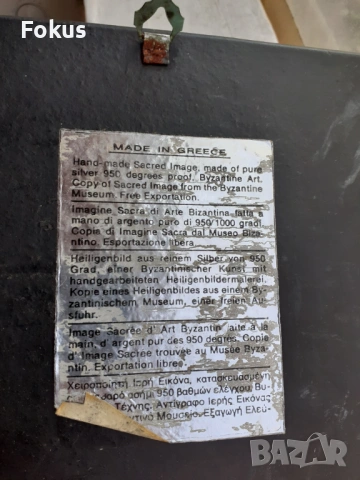 Fokus
MADE IN GREECE
Hand-made Sacred Image, made of pure
silver 950 degrees proof. Byzantine Art.
Copy of Sacred Image from the Byzantine
Museum. Free Exportation.
Imagine Sacra di Arte Bizantina fatta a
mano di argento puro di 950/1000 gradi.
Copia di Imagine Sacra dal Museo Biza-
ntino. Esportazione libera
Heiligenbild aus reinem Silber von 950
Grad, einer Byzantinischer Kunst mit
handgearbeiteten Heiligenbildermalerei.
Kopie eines Heiligenbildes aus einen By-
zantinischem Museum, einer freien Au-
sfuhr.
Image Sacrée d' Art Byzantin faite a la
main, d' argent pur des 950 degrés. Copie
d' Image Sacree trouvée au Musée Byza-
ntin. Exportation libres.
Χειροποίητη Ιερή Εικόνα, κατασκευασμένη
ασήμι 950 βαθμών ελέγχου. Βυ-
Τέχνης. Αντίγραφο Ιερής Εικόνας
Μουσείο. Εξαγωγή Ελεύ-
BAZAR